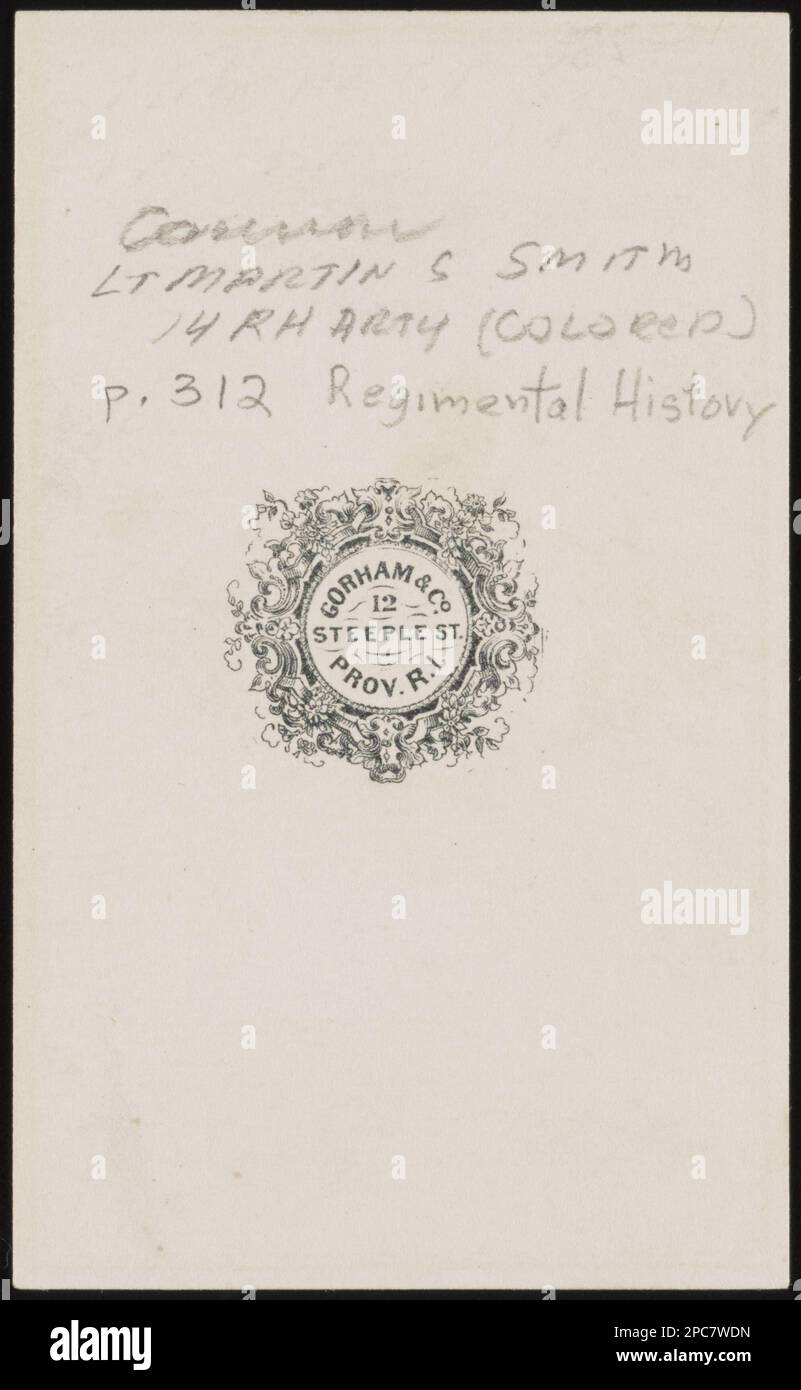 LT MARTIN S SMITH
14 RH ARTY (COLORED)
p. 312 Regimental History
GORHAM & Co.
12
STEEPLE ST.
PROV. R.I.
alamy
Image ID: 2PC7WDN
www.alamy.com